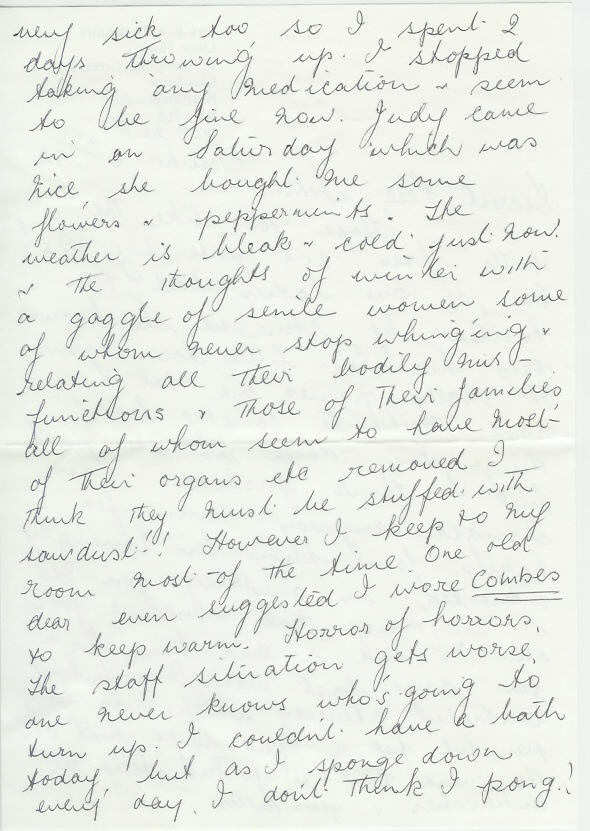 very sick too so I spent 2
days throwing up. I stopped
taking any medication & seem
to be fine now. Judy came
in on Saturday which was
nice she bought me some
flowers & peppermints. The
weather is bleak & cold just now!
& the thoughts of winter with
a gaggle of senile women some
of whom never stop whingeing &
relating all their bodily mis-
functions & those of their families
all of whom seem to have most
of their organs etc removed I
think they must be stuffed with
sawdust!! However I keep to my
room most of the time. One old
dear even suggested I wore combes
to keep warm. Horror of horrors.
The staff situation gets worse,
one never knows who's going to
turn up. I couldn't have a bath
today but as I sponge down
every day, I don't think I pong!